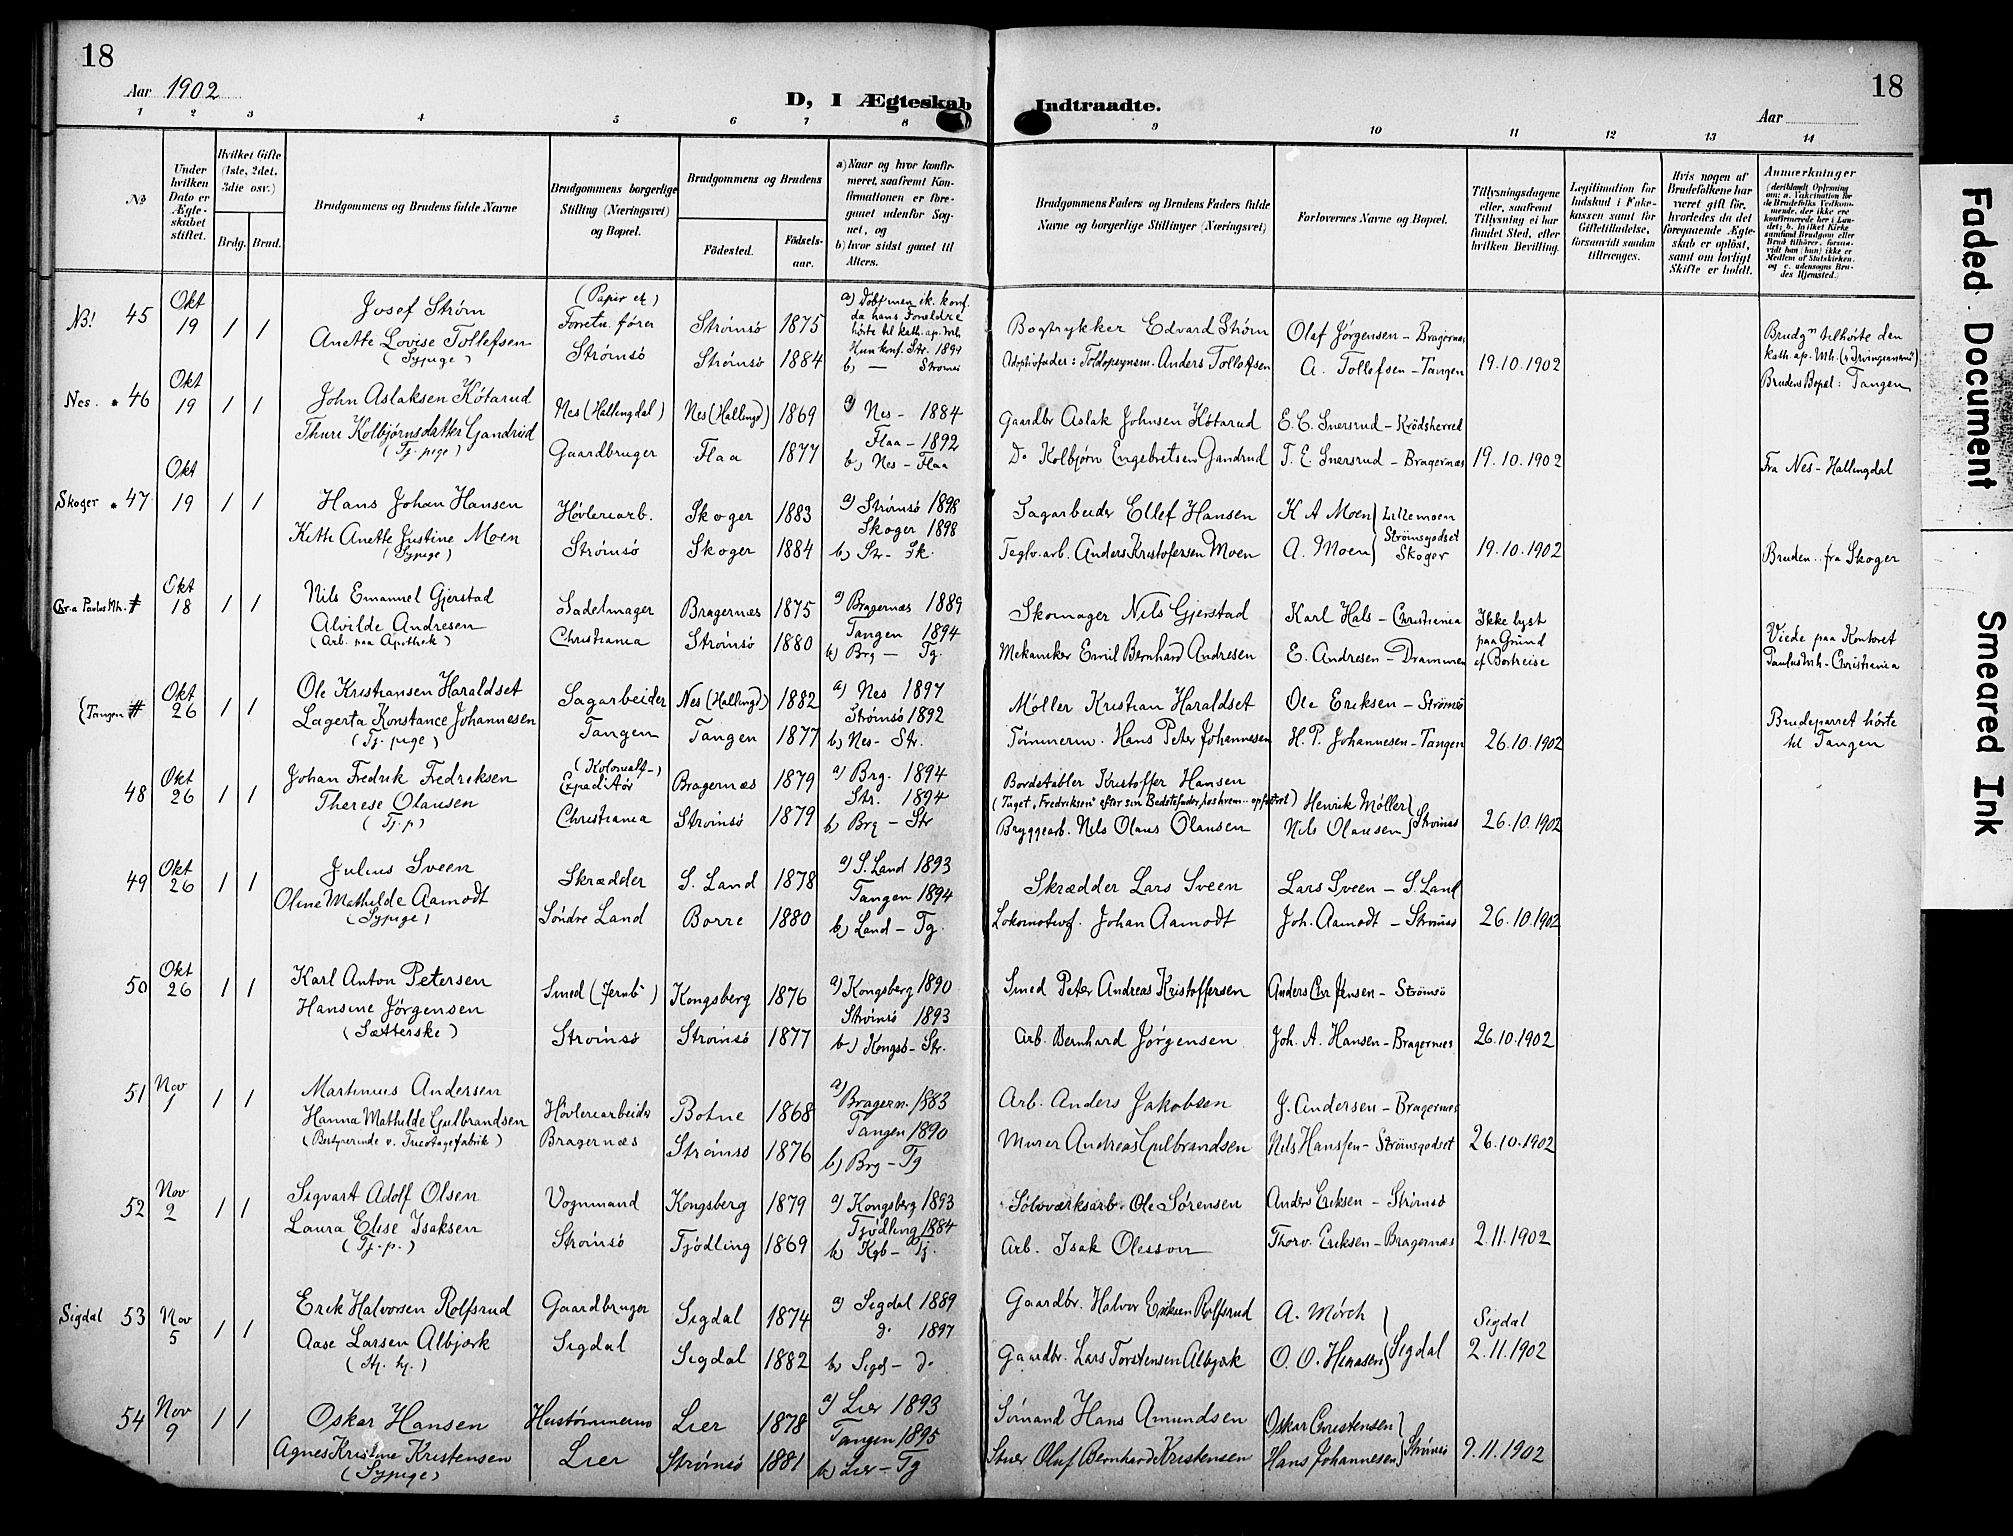 18
18
Aar 1902
D, I Ægteskab Indtraadte.
Aar
1 2 3 4 5 6 7 8 9 10 11 12 13 14
No
Under hvilken Dato er Ægte-skabet stiftet.
Hvilket Gifte (1ste, 2det, 3die osv.)
Brdg. Brud.
Brudgommens og Brudens fulde Navne
Brudgommens borgerlige Stilling (Næringsvei) og Bopæl.
Brudgommens og Brudens
Fødested. Fødsels-aar.
a) Naar og hvor konfir-meret, saafremt Kon-firmationen er fore-gaaet udenfor Sog-net, og
b) hvor sidst gaaet til Alters.
Brudgommens Faders og Brudens Faders fulde Navne og borgerlige Stillinger (Næringsvei)
Forlovernes Navne og Bopæl.
Tillysningsdagene eller, saafremt Tillysning ei har fundet Sted, efter hvilken Bevilling.
Legitimation for Indskud i Enke-kassen samt for Giftetilladelse, forsaavidt saadan tiltrænges.
Hvis nogen af Brudefolkene har været gift før, hvorledes da det foregaaende Ægte-skab er opløst, samt om lovligt Skifte er holdt.
Anmærkninger
NB! 45 Okt 19 1 1
Josef Strøm
Anette Lovise Tollefsen
(Sypige)
(Papir et)
Forretn. fører
Strømsø
Strømsø 1875
Strømsø 1884
a) Døbt men ik. konf.
da hans Forældre
hørte til kath. ap. Mh.
Hun konf. Str. 1899
b) — Strømsø
Bogtrykker Edvard Strøm
Adoptivfader: Toldopsynsm. Anders Tollefsen
Olaf Jørgensen - Bragernæs
A. Tollefsen - Tangen
19.10.1902
Brudgn tilhørte den
kath. ap. Mh. („Irvingianerne“)
Brudens Bopel: Tangen
Nes. 46 Okt 19 1 1
John Aslaksen Køtarud
Thuri Kolbjørnsdatter Gandrud
(Tj. pige)
Nes (Hallingdal)
Gaardbruger
Nes (Hallingd) 1869
Flaa 1877
a) Nes - 1884
Flaa - 1892
b) Nes - Flaa
Gaardbr Aslak Johnsen Køtarud
Do Kolbjørn Engebretsen Gandrud
E. E. Snersrud - Krødsherred
T. E. Snersrud - Bragernæs
19.10.1902
Fra Nes - Hallingdal
Skoger 47 Okt 19 1 1
Hans Johan Hansen
Kitti Anette Justine Moen
(Sypige)
Høvleriarb.
Strømsø
Skoger 1883
Skoger 1884
a) Strømsø 1898
Skoger 1898
b) Str - Sk.
Sagarbeider Ellef Hansen
Teglv. arb. Anders Kristofersen Moen
K A Moen } Lillemoen
A. Moen } Strømsgodset
Skoger
19.10.1902
Bruden fra Skoger
Chr.a Paulus Mh. # Okt 18 1 1
Nils Emanuel Gjerstad
Alvilde Andresen
(Arb. paa Apothek)
Sadelmager
Christiania
Bragernæs 1875
Strømsø 1880
a) Bragernæs 1889
Tangen 1894
b) Brg — Tg.
Skomager Nils Gjerstad
Mekaniker Emil Bernhard Andresen
Karl Hals - Christiania
E. Andresen - Drammen
Ikke lyst
paa Grund
af Bortreise
Viede paa Kontoret
Paulus Mh - Christiania
(Tangen # Okt 26 1 1
Ole Kristiansen Haraldset
Lagerta Konstance Johannesen
(Tj. pige)
Sagarbeider
Tangen
Nes (Hallingd) 1882
Tangen 1877
a) Nes 1897
Strømsø 1892
b) Nes - Str.
Møller Kristian Haraldset
Tømmerm. Hans Peter Johannesen
Ole Eriksen - Strømsø
H. P. Johannesen - Tangen
26.10.1902
Brudeparret hørte
til Tangen
48 Okt 26 1 1
Johan Fredrik Fredriksen
Therese Olausen
(Tj. p)
(Kolonialf-)
Expeditør
Christiania
Bragernæs 1879
Strømsø 1879
a) Brg. 1894
Str. 1894
b) Brg - Str
Bordstabler Kristoffer Hansen
(Taget „Fredriksen“ efter sin Bedstefader, hos hvem opfostret)
Bryggearb. Nils Olaus Olausen
Henrik Møller }
Nils Olausen } Strømsø
26.10.1902
49 Okt 26 1 1
Julius Sveen
Oline Mathilde Aamodt
(Sypige)
Skrædder
Søndre Land
S. Land 1878
Borre 1880
a) S. Land 1893
Tangen 1894
b) Land - Tg.
Skrædder Lars Sveen
Lokomotivf. Johan Aamodt
Lars Sveen - S. Land
Joh. Aamodt - Strømsø
26.10.1902
50 Okt 26 1 1
Karl Anton Petersen
Hansine Jørgensen
(Sætterske)
Smed (Jernb-)
Strømsø
Kongsberg 1876
Strømsø 1877
a) Kongsberg 1890
Strømsø 1893
b) Kongsb - Str.
Smed Peter Andreas Kristoffersen
Arb. Bernhard Jørgensen
Anders Chr Jensen - Strømsø
Joh. A. Hansen - Bragernæs
26.10.1902
51 Nov 1 1 1
Martinius Andersen
Hanna Mathilde Gulbrandsen
(Bestyrerinde v. Tricotagefabrik)
Høvleriarbeider
Bragernæs
Botne 1868
Strømsø 1876
a) Bragern. 1883
Tangen 1890
b) Brg - Tg
Arb. Anders Jakobsen
Murer Andreas Gulbrandsen
J. Andersen - Bragernæs
Nils Hansen - Strømsgodset
26.10.1902
52 Nov 2 1 1
Sigvart Adolf Olsen
Laura Elise Isaksen
(Tj. p.)
Vognmand
Strømsø
Kongsberg 1879
Tjødling 1869
a) Kongsberg 1893
Tjødling 1884
b) Kgb - Tj.
Sølvværksarb. Ole Sørensen
Arb. Isak Olesson
Anders Eriksen - Strømsø
Thorv. Eriksen - Bragernæs
2.11.1902
Sigdal 53 Nov 5 1 1
Erik Halvorsen Rolfsrud
Aase Larsen Albjærk
Gaardbruger
Sigdal
Sigdal 1874
Sigdal 1882
a) Sigdal 1889
do 1897
b) Sigd - do
Gaardbr. Halvor Eriksen Rolfsrud
Gaardbr. Lars Torstensen Albjærk
A. Mørch }
O. O. Henasen } Sigdal
Sigdal
2.11.1902
54 Nov 9 1 1
Oskar Hansen
Agnes Kristine Kristensen
(Sypige)
Hustømmerm
Lier
Lier 1878
Strømsø 1881
a) Lier 1893
Tangen 1895
b) Lier - Tg
Sømand Hans Amundsen
Stuer Oluf Bernhard Kristensen
Oskar Christensen }
Hans Johannesen } Strømsø
9.11.1902
Faded Document
Smeared Ink